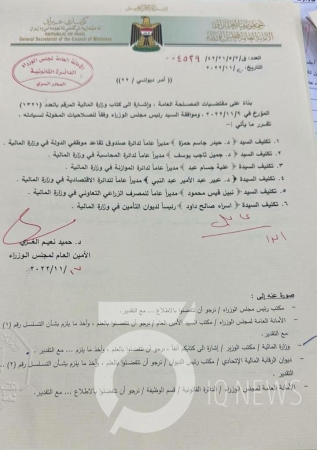 جمهورية العراق
الأمانة العامة لمجلس الوزراء
REPUBLIC OF IRAQ
General Secretariat of the Council of Ministers
الامانة العامة لمجلس الوزراء
الدائرة القانونية
العدد:
التاريخ: ٢٠٢٢/١١/
(أمر ديواني / ٢٢)
بناءً على مقتضيات المصلحة العامة ، وإشارة إلى كتاب وزارة المالية المرقم بالعدد (١٣٢١)
المؤرخ في ٢٠٢٢/١١/٩ ، وموافقة السيد رئيس مجلس الوزراء وفقاً للصلاحيات المخولة لسيادته ،
تقرر ما يأتي :-
١. تكليف السيد د. حيدر جاسم حمزة مديراً عاماً لدائرة صندوق تقاعد موظفي الدولة في وزارة المالية .
٢. تكليف السيد د. جميل ثاجب يوسف مديراً عاماً لدائرة المحاسبة في وزارة المالية .
٣. تكليف السيدة علية جسام عبد مديراً عاماً لدائرة الموازنة في وزارة المالية .
٤. تكليف السيدة د. عبير عبد الأمير عبد النبي مديراً عاماً للدائرة الاقتصادية في وزارة المالية .
٥. تكليف السيد نبيل قيس محمود مديراً عاماً للمصرف الزراعي التعاوني في وزارة المالية .
٦. تكليف السيدة د. اسراء صالح داود رئيساً لديوان التأمين في وزارة المالية .
د. حميد نعيم الغزي
الأمين العام لمجلس الوزراء
/٢٠٢٢/١١
صورة عنه إلى :
- مكتب رئيس مجلس الوزراء / نرجو أن تتفضلوا بالاطلاع ... مع التقدير .
- الأمانة العامة لمجلس الوزراء / مكتب السيد الأمين العام / نرجو أن تتفضلوا بالعلم ، وأخذ ما يلزم بشأن التسلسل رقم (١)
مع التقدير .
- وزارة المالية / مكتب الوزير / إشارة الى كتابكم آنفاً / نرجو أن تتفضلوا بالعلم ، وأخذ ما يلزم ... مع التقدير .
- ديوان الرقابة المالية الإتحادي / مكتب رئيس الديوان / نرجو أن تتفضلوا بالعلم ، وأخذ ما يلزم بشأن التسلسل رقم (٢)
مع التقدير .
- الأمانة العامة لمجلس الوزراء / الدائرة القانونية / قسم الوظيفة / نرجو أن تتفضلوا بالاطلاع ... مع التقدير.
IQ NEWS